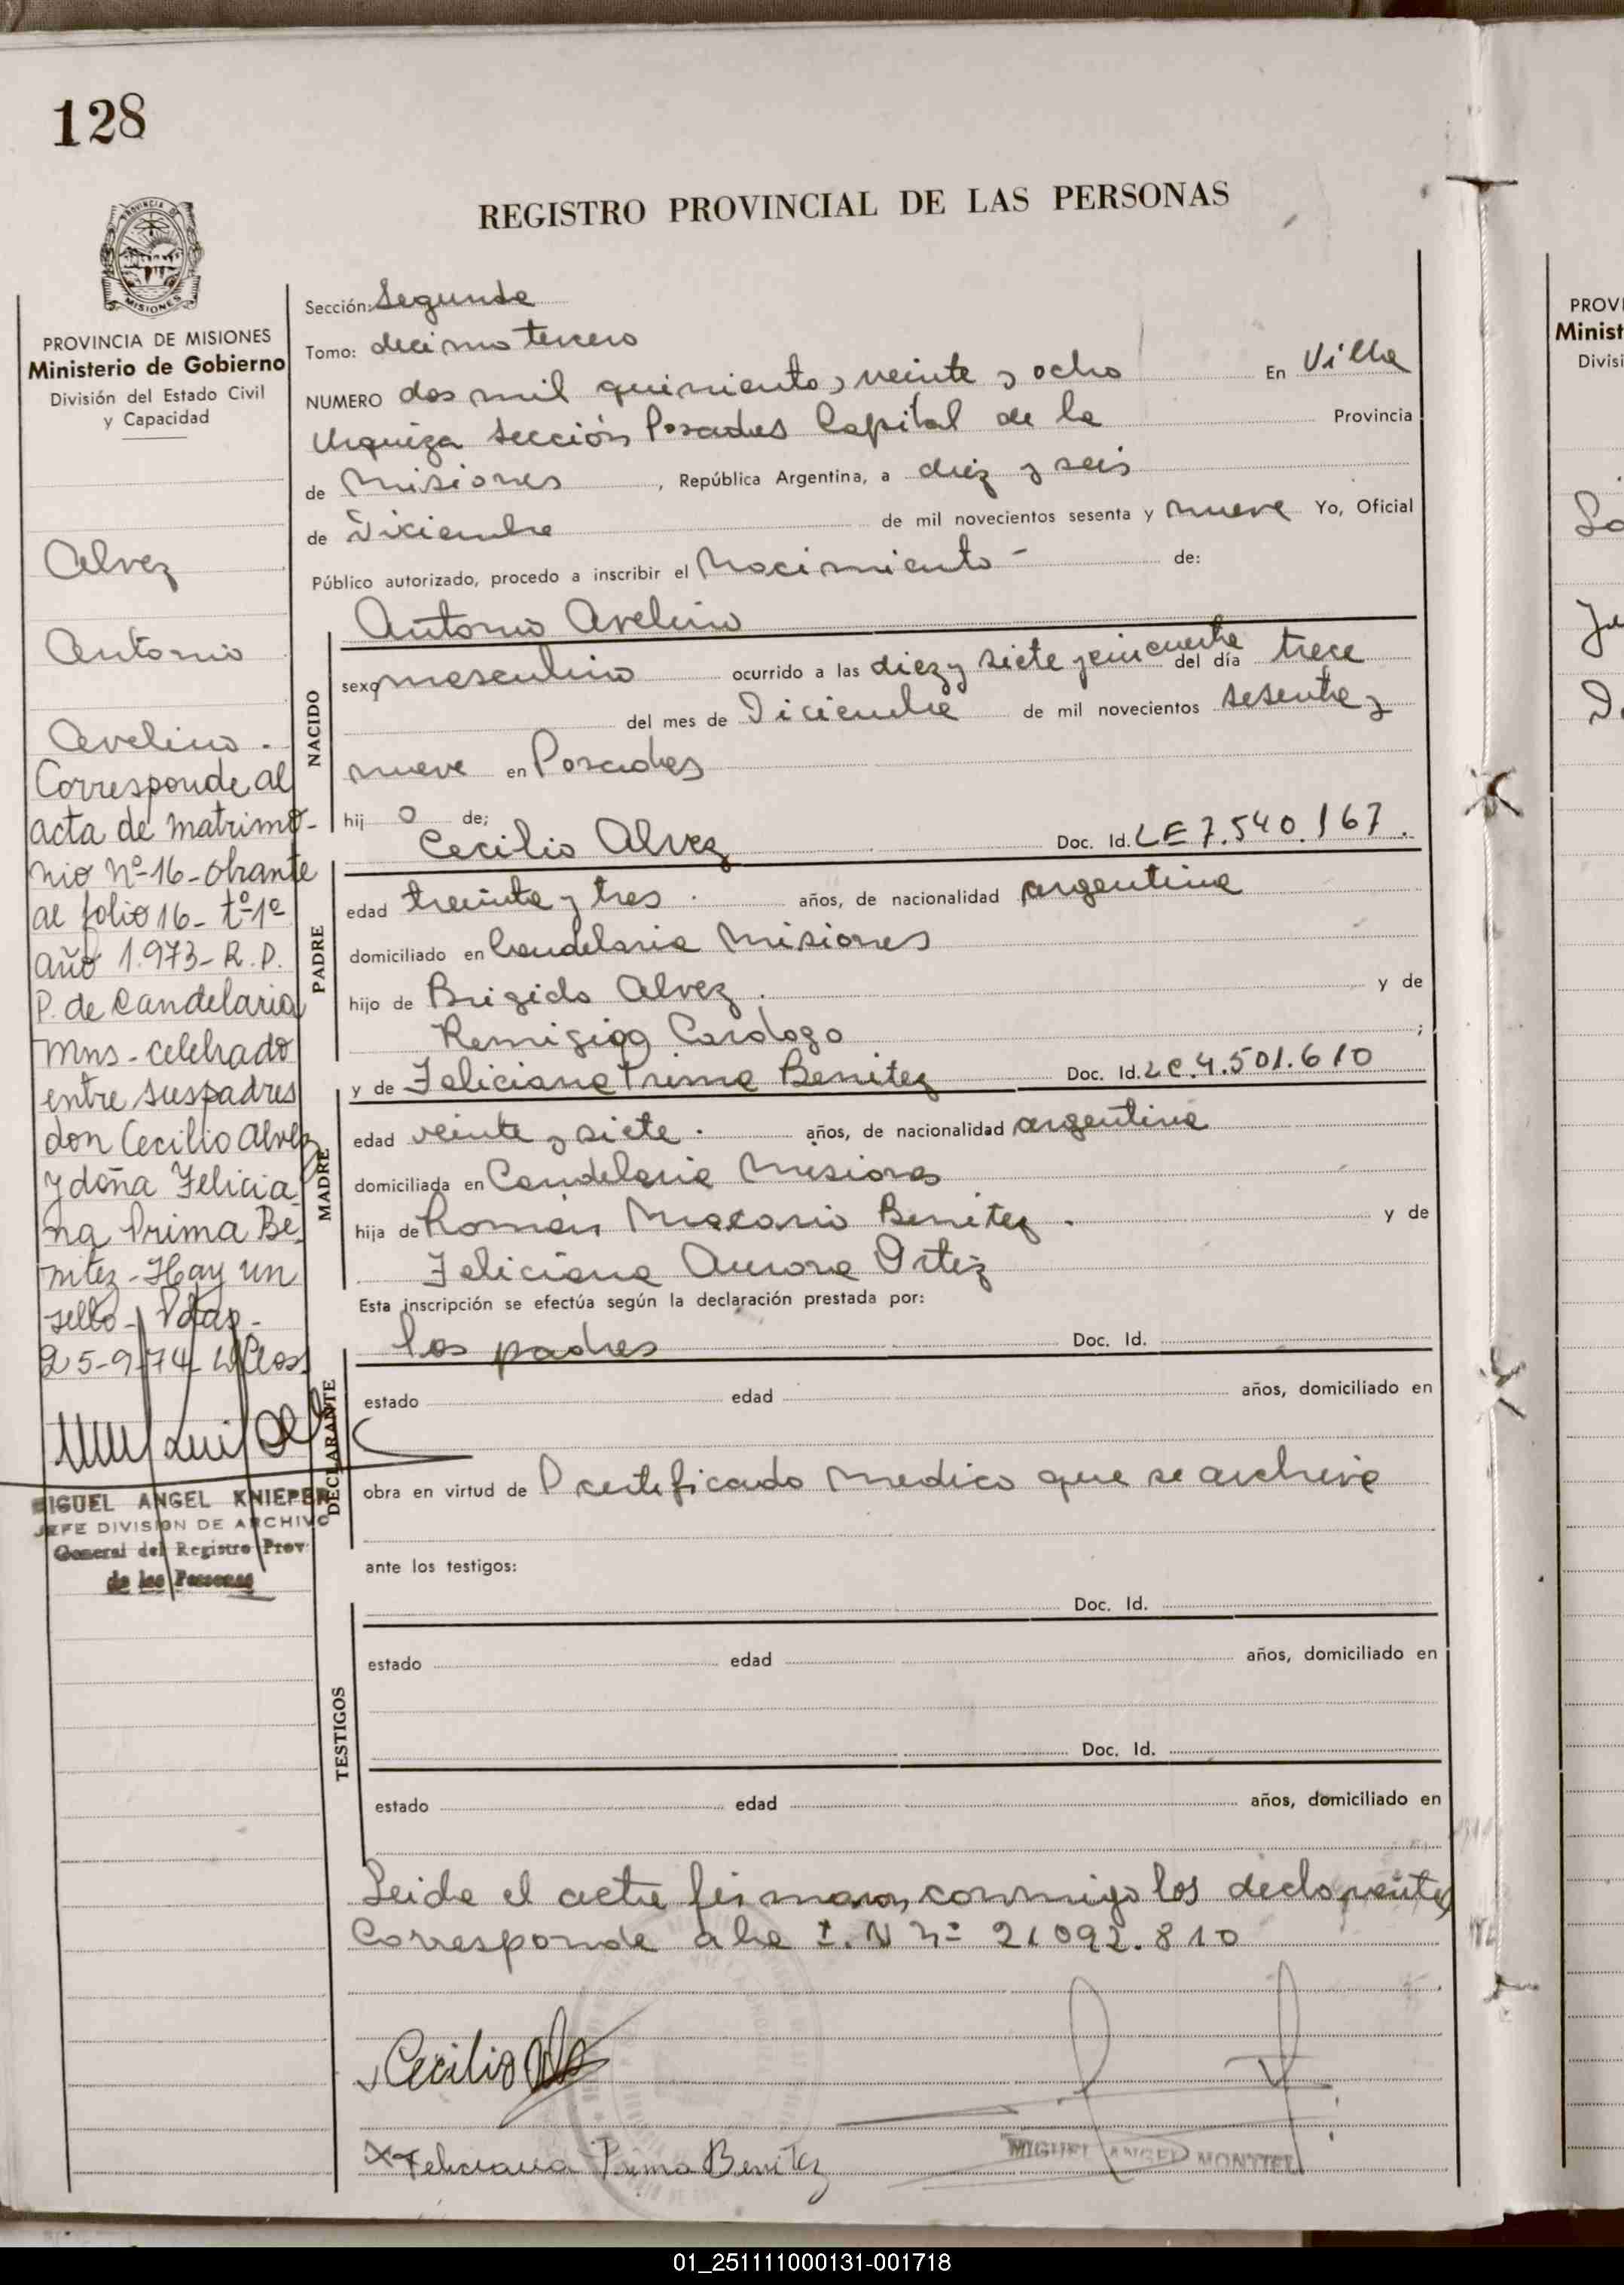 128
REGISTRO PROVINCIAL DE LAS PERSONAS
PROVINCIA DE
MISIONES
PROVINCIA DE MISIONES
Ministerio de Gobierno
División del Estado Civil
y Capacidad
Alvez
Antonio
Avelino.
Corresponde al
acta de matrimo-
nio Nº-16-obrante
al folio 16- tº-1º
año 1.973- R.P.
P. de Candelaria
Mns-celebrado
entre sus padres
don Cecilio Alvez
y doña Felicia
na Prima Be-
nitez-Hay un
sello- Pdas-
25-9-74
MIGUEL ANGEL KNIEPER
JEFE DIVISION DE ARCHIVO
General del Registro Prov.
de las Personas
Sección: Segunda
Tomo: decimo tercero
NUMERO dos mil quinientos veinte y ocho En Villa
Urquiza Sección Posadas Capital de la Provincia
de Misiones, República Argentina, a diez y seis
de Diciembre de mil novecientos sesenta y nueve Yo, Oficial
Público autorizado, procedo a inscribir el Nacimiento - de:
Antonio Avelino
NACIDO
sexo masculino ocurrido a las diez y siete y cincuenta del día trece
del mes de Diciembre de mil novecientos sesenta y
nueve en Posadas
hij o de;
Cecilio Alvez Doc. Id. LE 7.540.167.
PADRE
edad treinta y tres. años, de nacionalidad argentina
domiciliado en Candelaria Misiones
hijo de Brigido Alvez. y de
Remigia Cardozo ;
y de Feliciana Prima Benitez Doc. Id. LC.4.501.610
MADRE
edad veinte y siete. años, de nacionalidad argentina
domiciliada en Candelaria Misiones
hija de Román Macario Benitez. y de
Feliciana Aurora Ortiz
Esta inscripción se efectúa según la declaración prestada por:
los padres Doc. Id.
DECLARANTE
estado edad años, domiciliado en
obra en virtud de certificado medico que se archiva
ante los testigos:
Doc. Id.
TESTIGOS
estado edad años, domiciliado en
Doc. Id.
estado edad años, domiciliado en
Leida el acta firman conmigo los declarantes
Corresponde a la I. N nº 21092.810
Cecilio
x Feliciana Prima Benitez
MIGUEL ANGEL MONTIEL
PROVI
Minist
Divisi
01_251111000131-001718